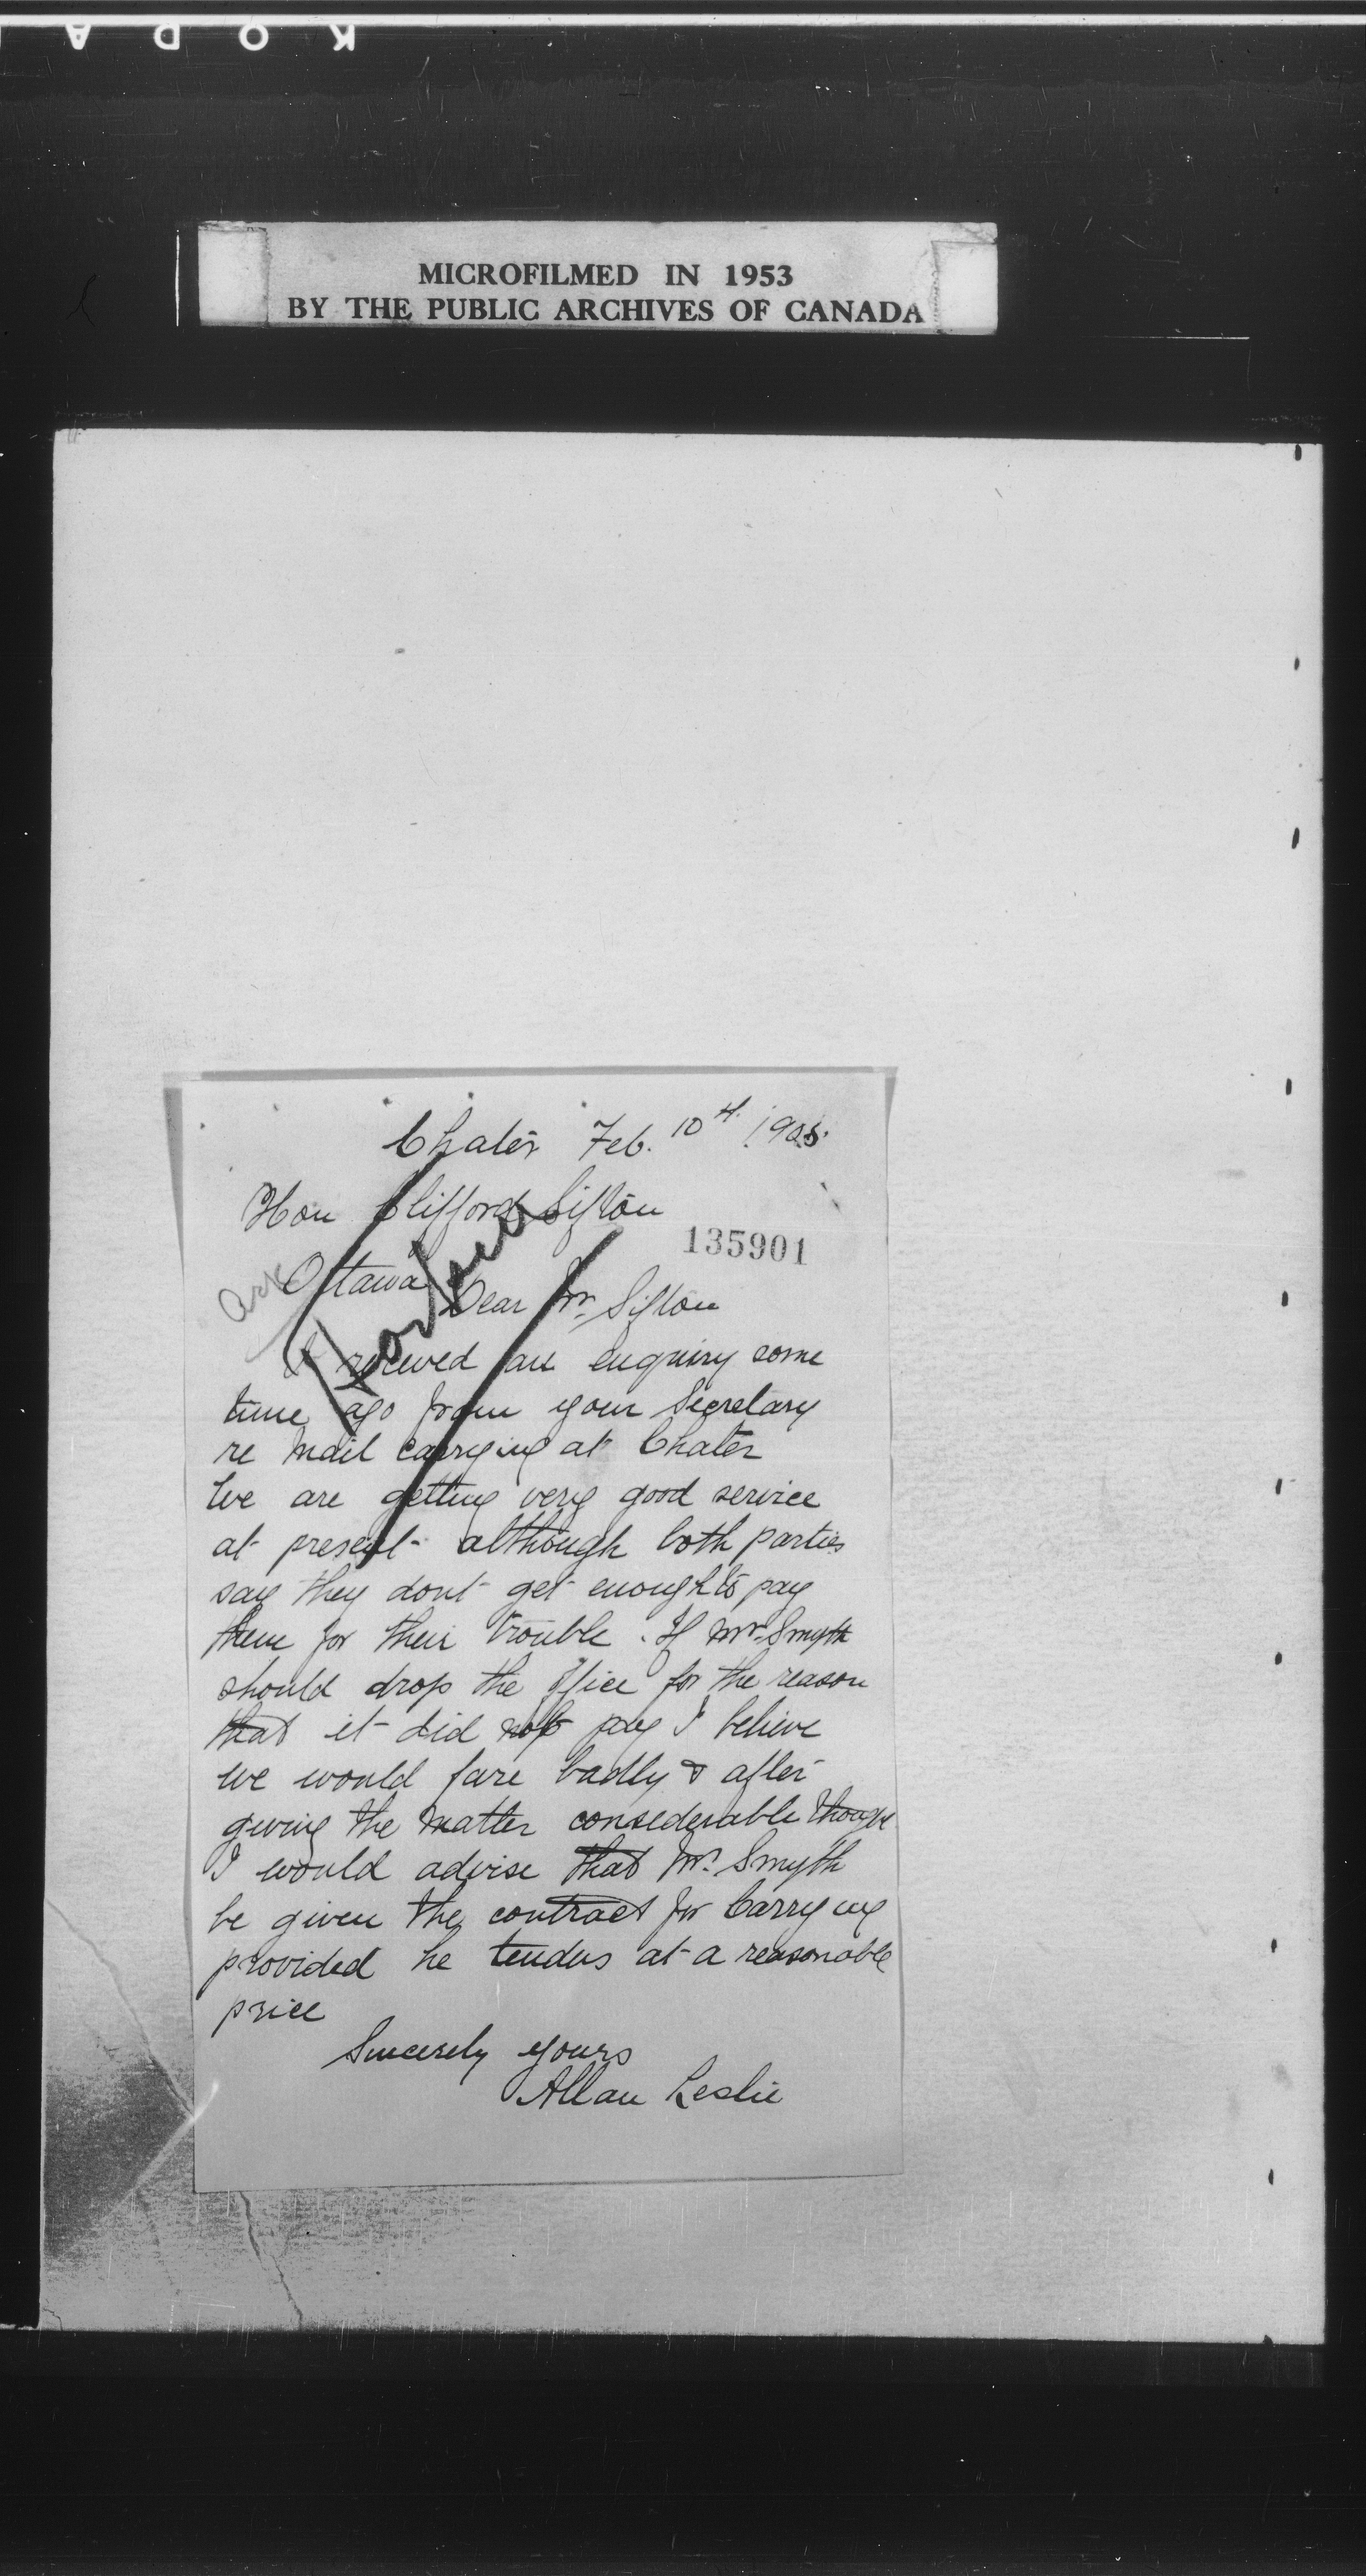 KODA
MICROFILMED IN 1953
BY THE PUBLIC ARCHIVES OF CANADA
Chater Feb. 10th 1905.
Hon Clifford Sifton
135901
Ack
Ottawa
Dear Mr. Sifton
I received an enquiry some
time ago from your Secretary
re Mail carrying at Chater
We are getting very good service
at present although both parties
say they dont get enough to pay
them for their trouble. If Mr. Smyth
should drop the office for the reason
that it did not pay I believe
we would fare badly & after
giving the matter considerable thought
I would advise that Mr. Smyth
be given the contract for Carrying
provided he tenders at a reasonable
price
Sincerely yours
Allan Leslie